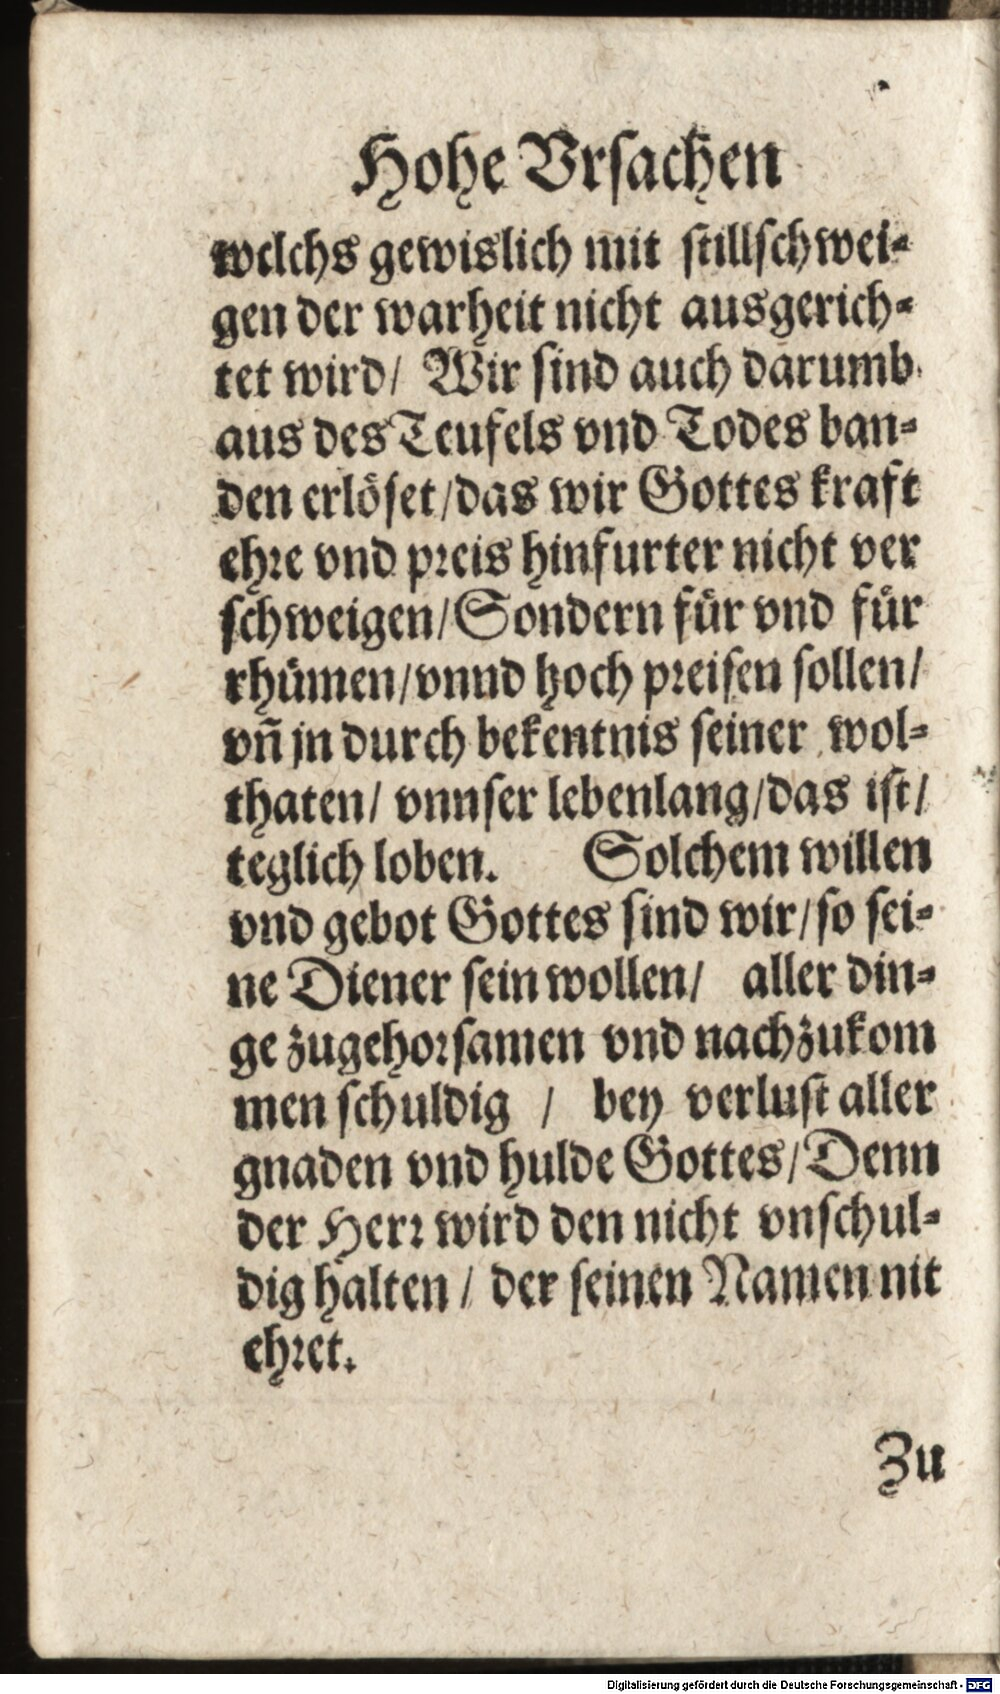 Hohe Vrsachen
welchs gewislich mit stillschwei-
gen der warheit nicht ausgerich-
tet wird/ Wir sind auch darumb
aus des Teufels vnd Todes ban-
den erlöset/das wir Gottes kraft
ehre vnd preis hinfurter nicht ver
schweigen/Sondern für vnd für
rhümen/vnnd hoch preisen sollen/
vñ jn durch bekentnis seiner wol-
thaten/ vnnser lebenlang/das ist/
teglich loben. Solchem willen
vnd gebot Gottes sind wir/so sei-
ne Diener sein wollen/ aller din-
ge zugehorsamen vnd nachzukom
men schuldig / bey verlust aller
gnaden vnd hulde Gottes/Denn
der Herr wird den nicht vnschul-
dig halten / der seinen Namen nit
ehret.
Zu
Digitalisierung gefördert durch die Deutsche Forschungsgemeinschaft - DFG